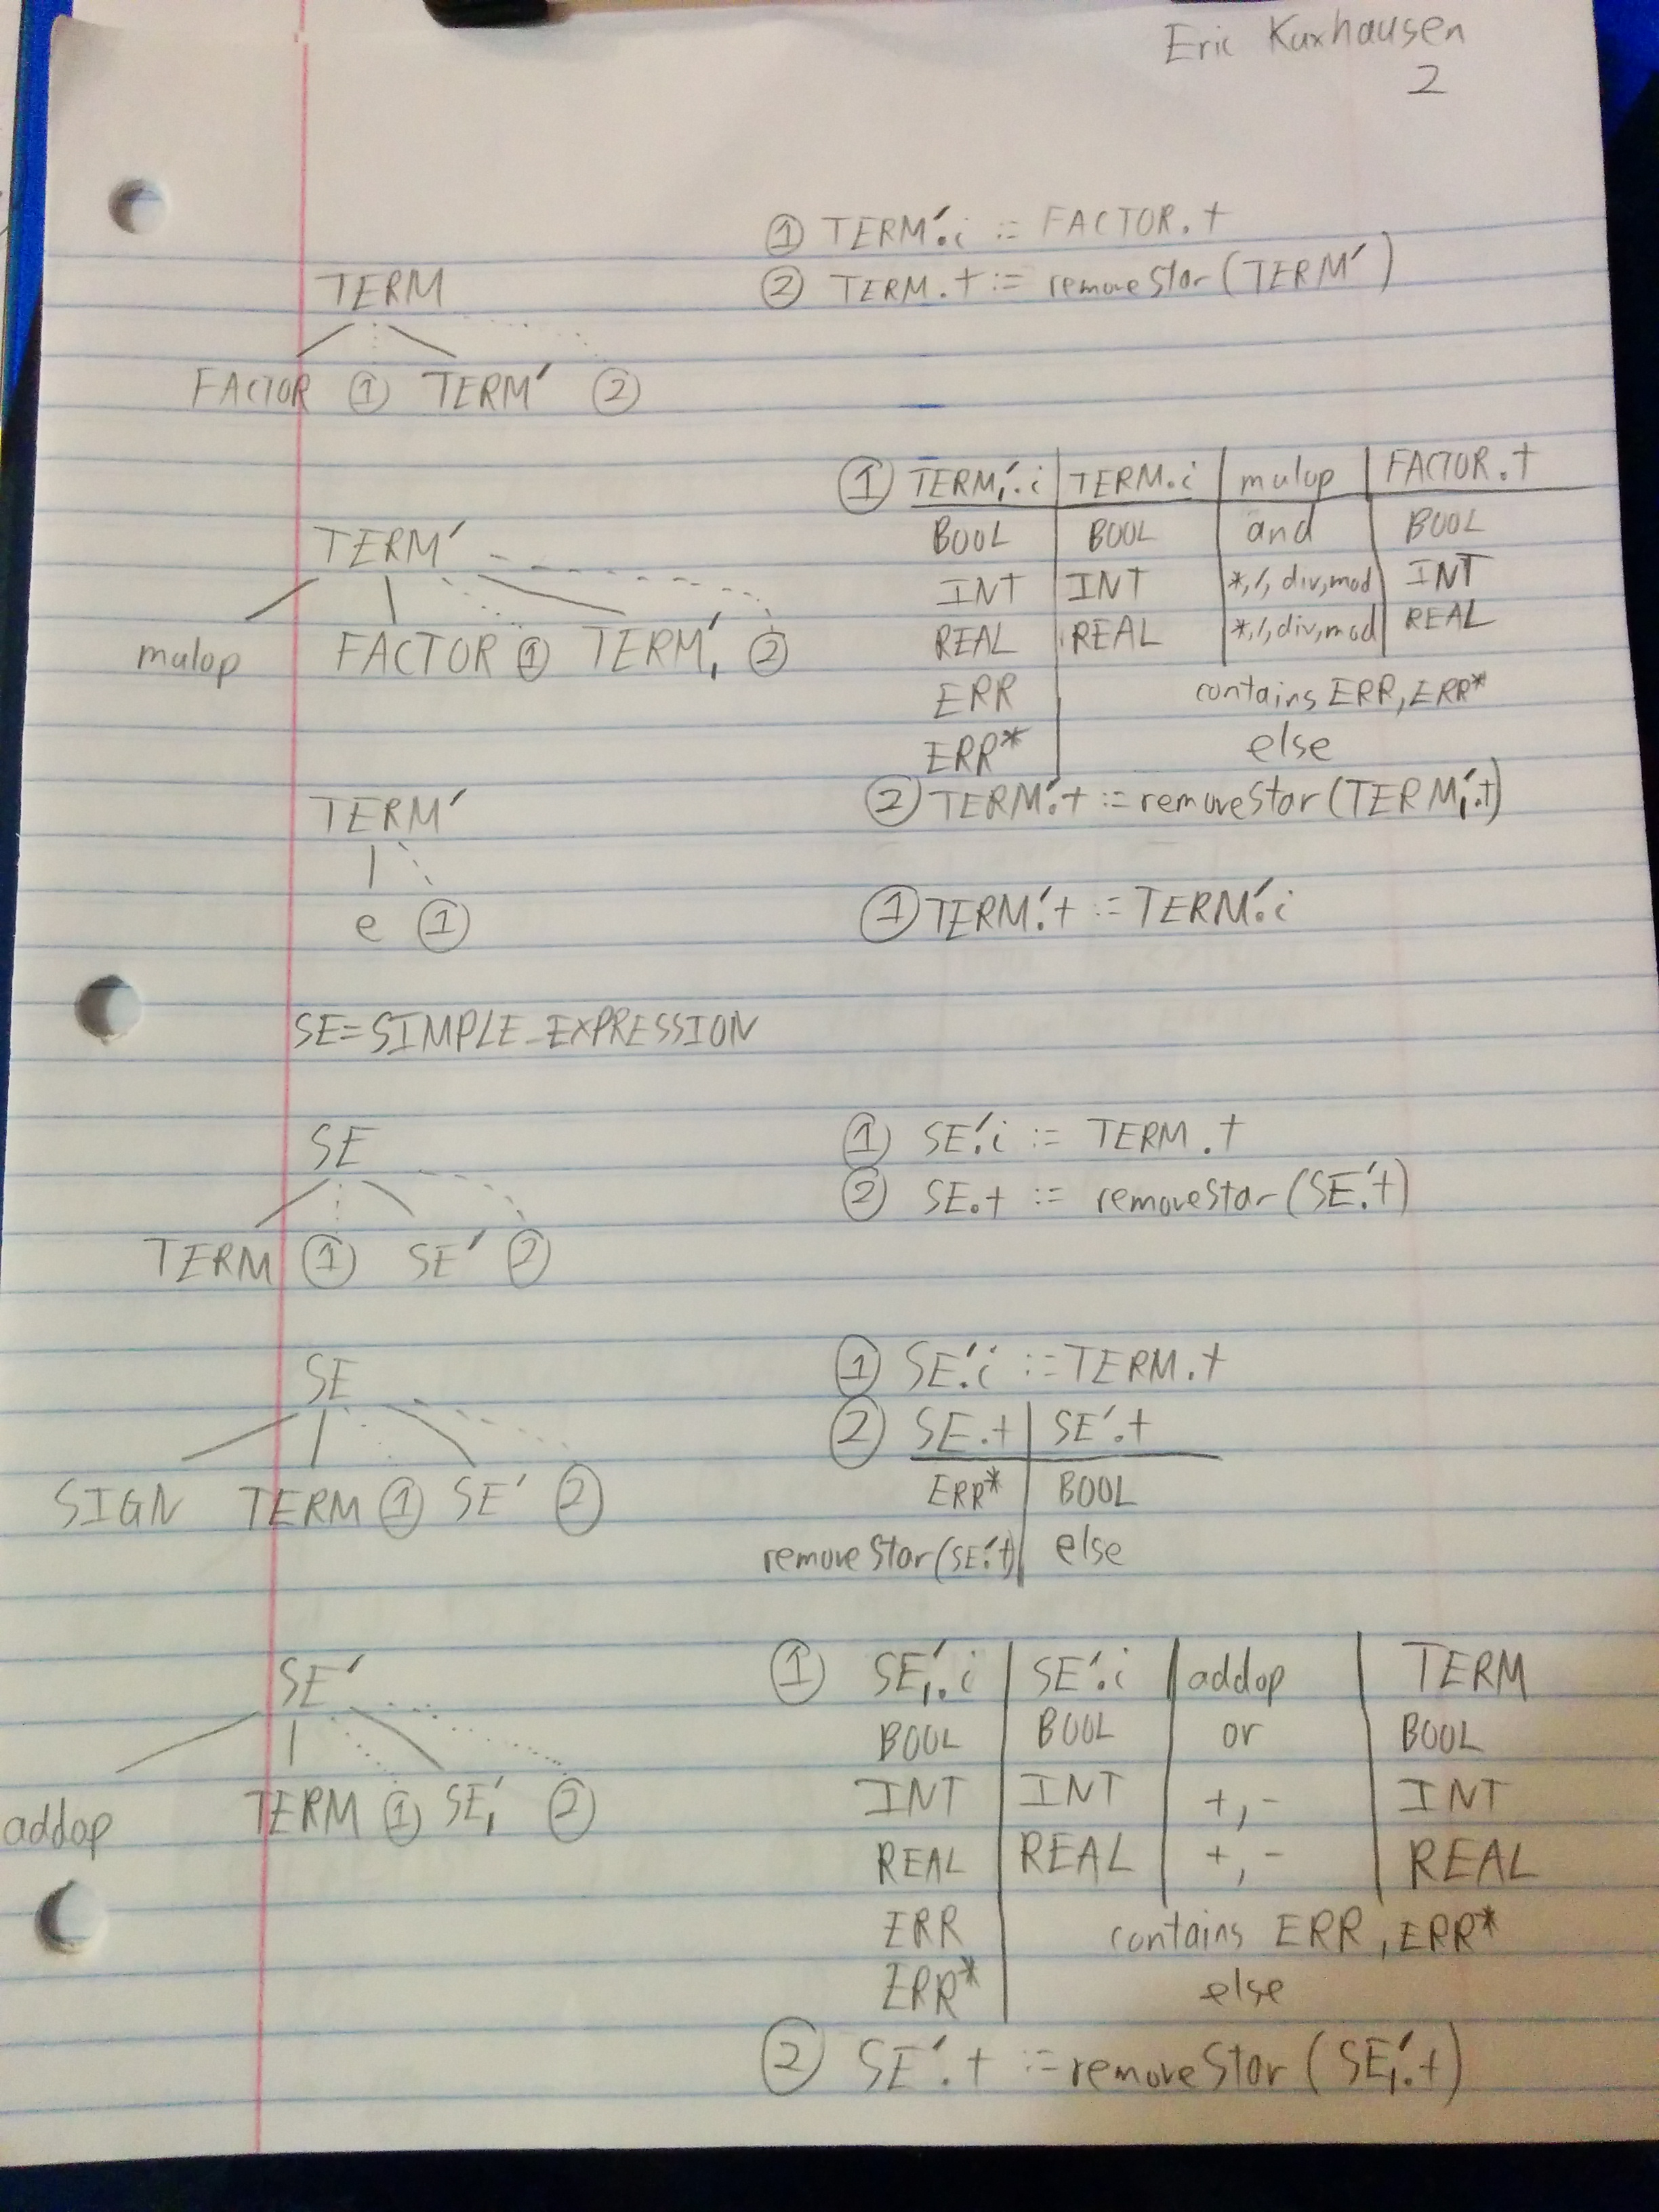 Eric Kuxhausen
2
① TERM′.i := FACTOR.t
② TERM.t := removeStar(TERM′)
TERM
FACTOR ① TERM′ ②
① TERM₁′.i | TERM.i | mulop | FACTOR.t
BOOL | BOOL | and | BOOL
INT | INT | *,/,div,mod | INT
REAL | REAL | *,/,div,mod | REAL
ERR | contains ERR, ERR*
ERR* | else
② TERM′.t := removeStar(TERM₁′.t)
TERM′
mulop FACTOR ① TERM₁′ ②
TERM′
e ①
① TERM′.t := TERM′.i
SE=SIMPLE_EXPRESSION
SE
TERM ① SE′ ②
① SE′.i := TERM.t
② SE.t := removeStar(SE′.t)
SE
SIGN TERM ① SE′ ②
① SE′.i := TERM.t
② SE.t | SE′.t
ERR* | BOOL
removeStar(SE′.t) | else
SE′
addop TERM ① SE₁′ ②
① SE₁′.i | SE′.i | addop | TERM
BOOL | BOOL | or | BOOL
INT | INT | +,- | INT
REAL | REAL | +,- | REAL
ERR | contains ERR, ERR*
ERR* | else
② SE′.t := removeStar(SE₁′.t)